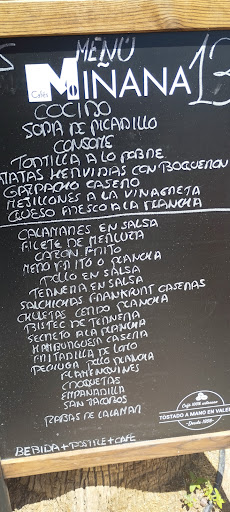 MENÚ
13
Cafés
MIÑANA
COCIDO
SOPA DE PICADILLO
CONSOME
TORTILLA A LO POBRE
PATATAS HERVIDAS CON BOQUERON
GAZPACHO CASERO
MEJILLONES A LA VINAGRETA
QUESO FRESCO A LA PLANCHA
CALAMARES EN SALSA
FILETE DE MERLUZA
CAZON FRITO
MERO FRITO O PLANCHA
POLLO EN SALSA
TERNERA EN SALSA
SALCHICHAS FRANKFURT CASERAS
CHULETAS CERDO PLANCHA
BISTEC DE TERNERA
SECRETO A LA PLANCHA
HAMBURGUESA CASERA
FRITADILLA DE LOMO
PECHUGA POLLO PLANCHA
FLAMENQUINES
CROQUETAS
EMPANADILLA
SAN JACOBOS
RABAS DE CALAMAR
Café 100% artesano
TOSTADO A MANO EN VALE
Desde
BEBIDA + POSTRE + CAFE